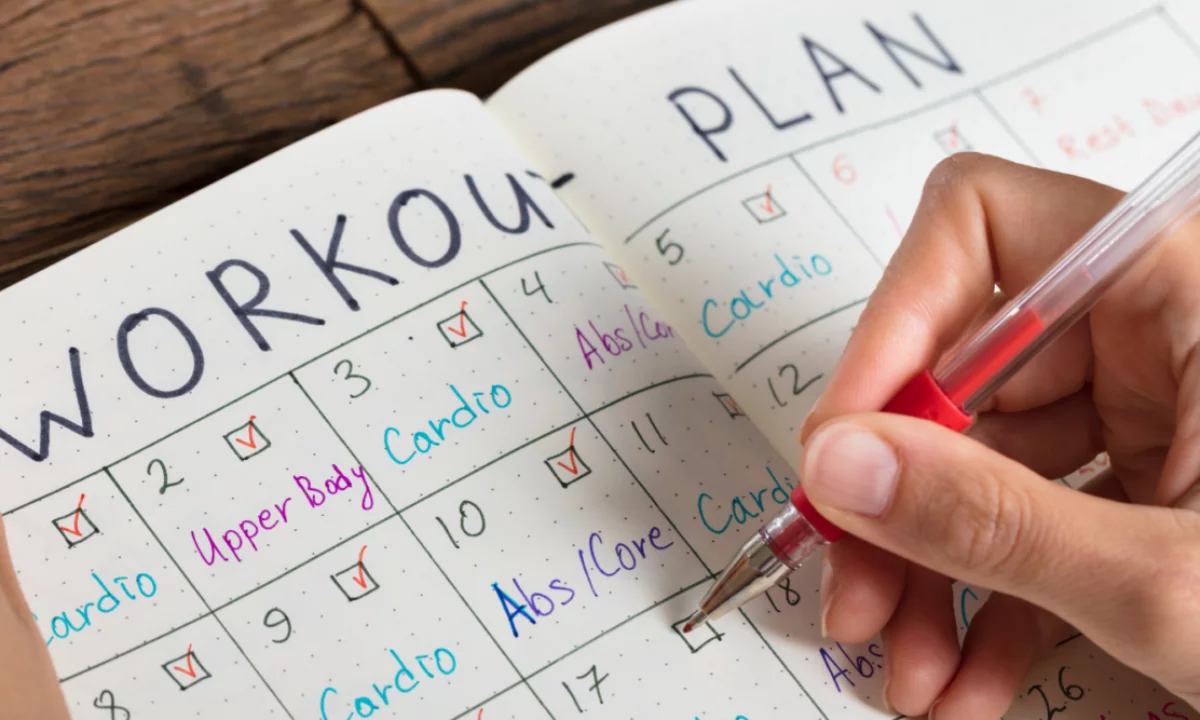 WORKOUT PLAN
Cardio
2
Upper Body
3
Cardio
4
Abs/Cor
5
Cardio
6
7
Rest Day
8
9
Cardio
10
Abs/Core
11
Cardi
12
17
18
Abs
26